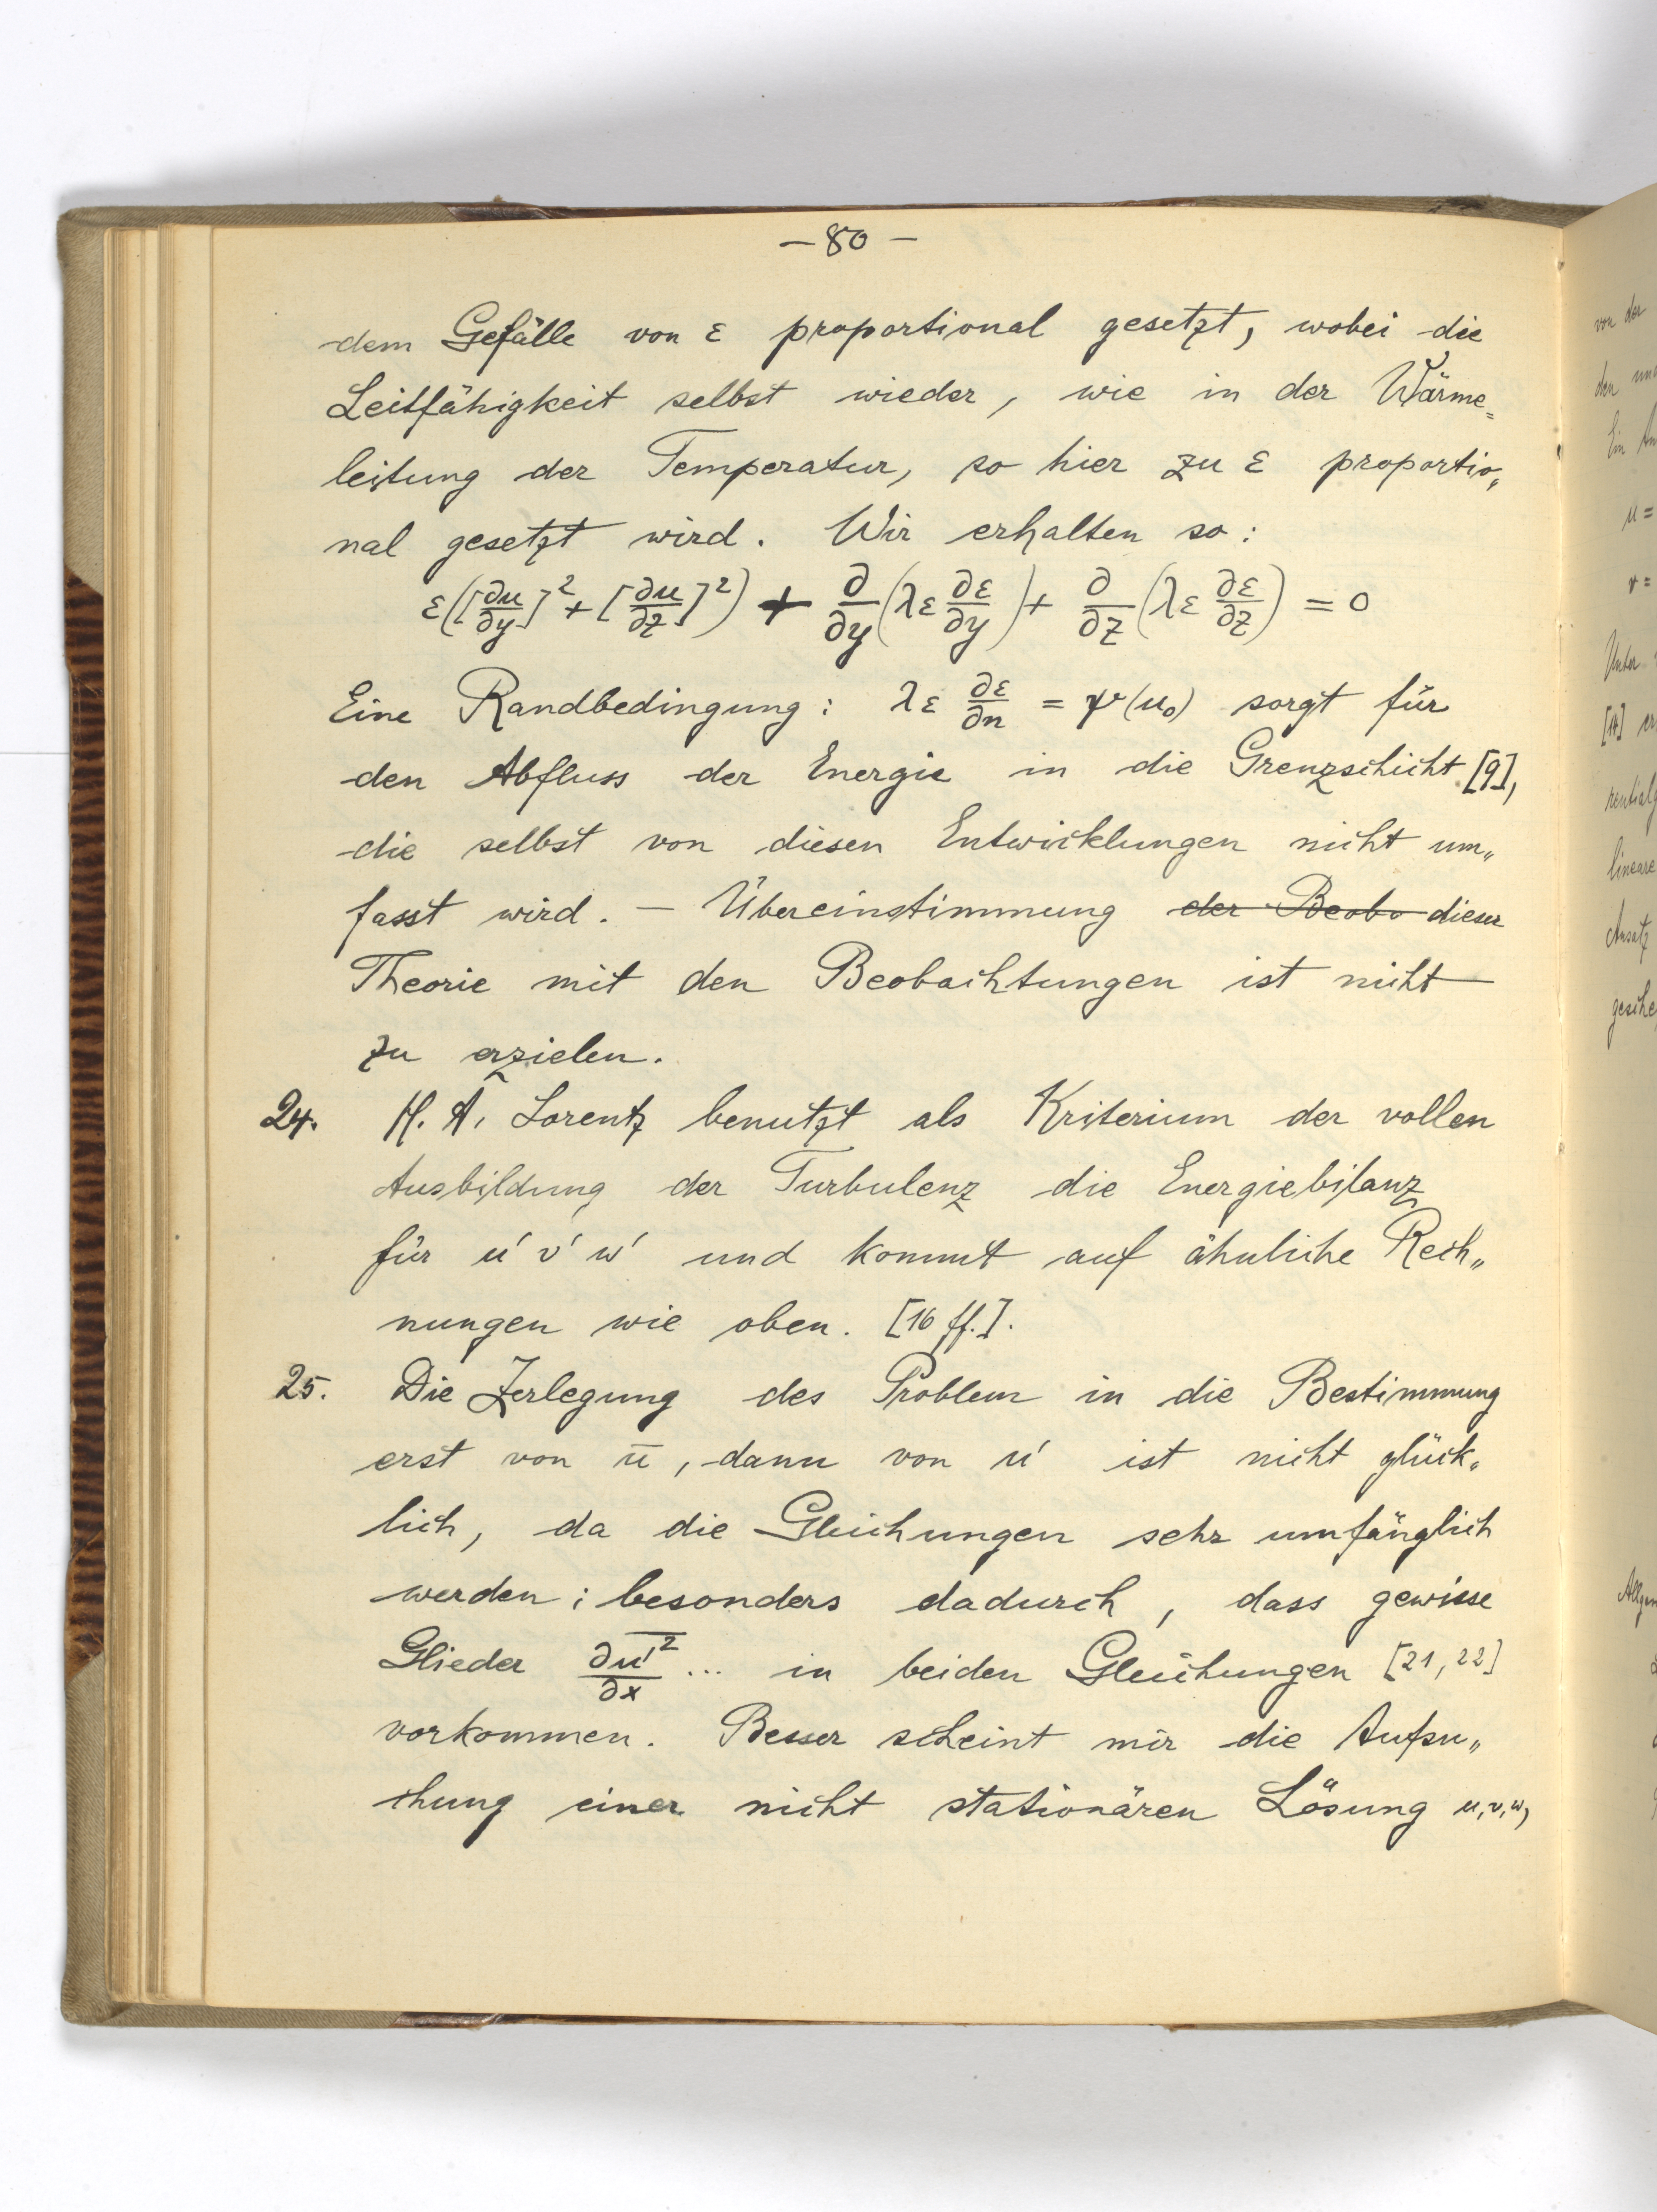 — 80 —
dem Gefälle von ε proportional gesetzt, wobei die
Leitfähigkeit selbst wieder, wie in der Wärme=
leitung der Temperatur, so hier zu ε proportio„
nal gesetzt wird. Wir erhalten so:
ε([∂u/∂y]² + [∂u/∂z]²) + ∂/∂y (λε ∂ε/∂y) + ∂/∂z (λε ∂ε/∂z) = 0
Eine Randbedingung: λε ∂ε/∂n = ψ(u₀) sorgt für
den Abfluss der Energie in die Grenzschicht [9],
die selbst von diesen Entwicklungen nicht um„
fasst wird. — Übereinstimmung der Beobo dieser
Theorie mit den Beobachtungen ist nicht
zu erzielen.
24. H. A. Lorentz benutzt als Kriterium der vollen
Ausbildung der Turbulenz die Energiebilanz
für u' v' w' und kommt auf ähnliche Rech„
nungen wie oben. [16 ff.].
25. Die Zerlegung des Problem in die Bestimmung
erst von u̅, dann von u' ist nicht glück„
lich, da die Gleichungen sehr umfänglich
werden; besonders dadurch, dass gewisse
Glieder ∂u̅'²/∂x ... in beiden Gleichungen [21, 22]
vorkommen. Besser scheint mir die Aufsu„
chung einer nicht stationären Lösung u, v, w,
von der
u =
v =
[14]
lineare
Ansatz